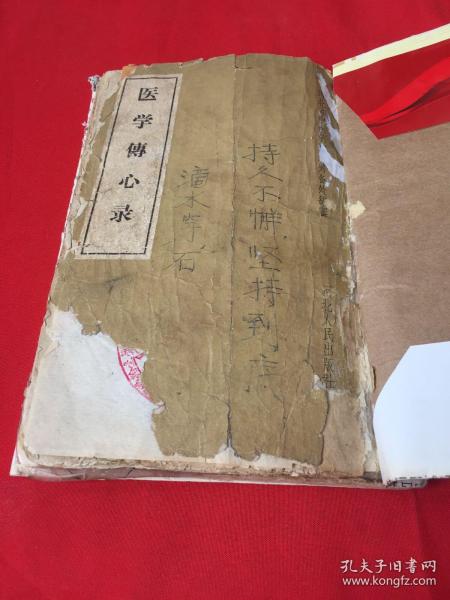 医学傳心录
持久不懈坚持到底
滴水穿石
北人民出版社
孔夫子旧书网
www.kongfz.com